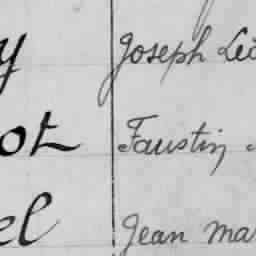 y Joseph Léo
ot Faustin
el Jean Mar